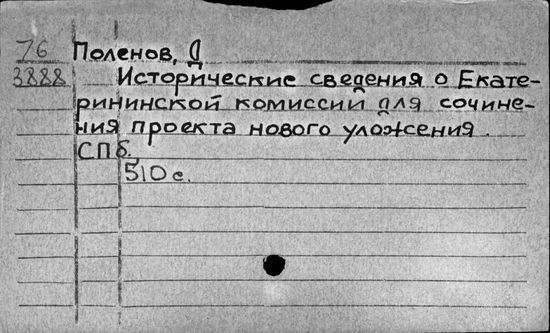 76 Поленов, Д
3888 Исторические сведения о Екате-
рининской комиссии для сочине-
ния проекта нового уложения.
СПб.
510 с.